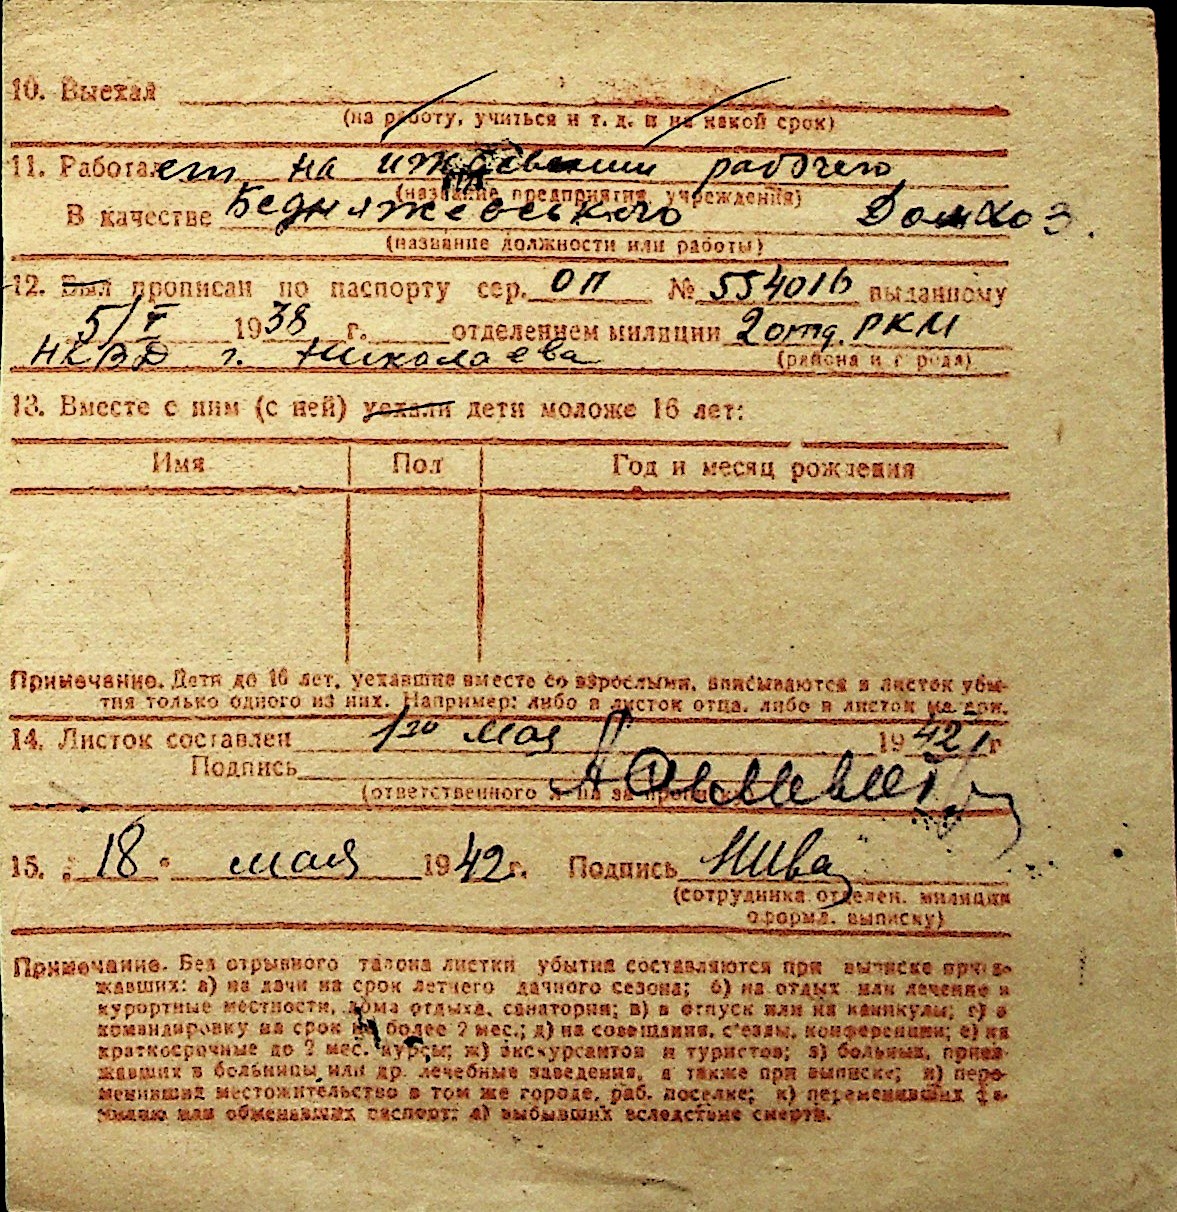 10. Выехал
(на работу, учиться и т. д. и на какой срок)
11. Работает на иждивении рабочего
(название предприятия, учреждения)
В качестве Домхоз.
(название должности или работы)
12. Был прописан по паспорту сер. ОП № 554016 выданному
5/V 1938 г. отделением милиции 2 отд. РКМ
НКВД г. Николаева (района и города)
13. Вместе с ним (с ней) уехали дети моложе 16 лет:
Имя Пол Год и месяц рождения
Примечание. Дети до 16 лет, уехавшие вместе со взрослыми, вписываются в листок убы-
тия только одного из них. Например: либо в листок отца, либо в листок матери.
14. Листок составлен мая 1942 г
Подпись
(ответственного л-ца за прописку)
15. „18“ мая 1942 г. Подпись
(сотрудника отделен. милиции
оформл. выписку)
Примечание. Без отрывного талона листки убытия составляются при выписке приез-
жавших: а) на дачи на срок летнего дачного сезона; б) на отдых или лечение в
курортные местности, дома отдыха, санатории; в) в отпуск или на каникулы; г) в
командировку на срок не более 2 мес.; д) на совещания, с'езды, конференции; е) на
краткосрочные до 2 мес. курсы; ж) экскурсантов и туристов; з) больных, приез-
жавших в больницы или др. лечебные заведения, а также при выписке; и) пере-
менивших местожительство в том же городе, раб. поселке; к) переменивших фа-
милию или обменавших паспорт; л) выбывших вследствие смерти.